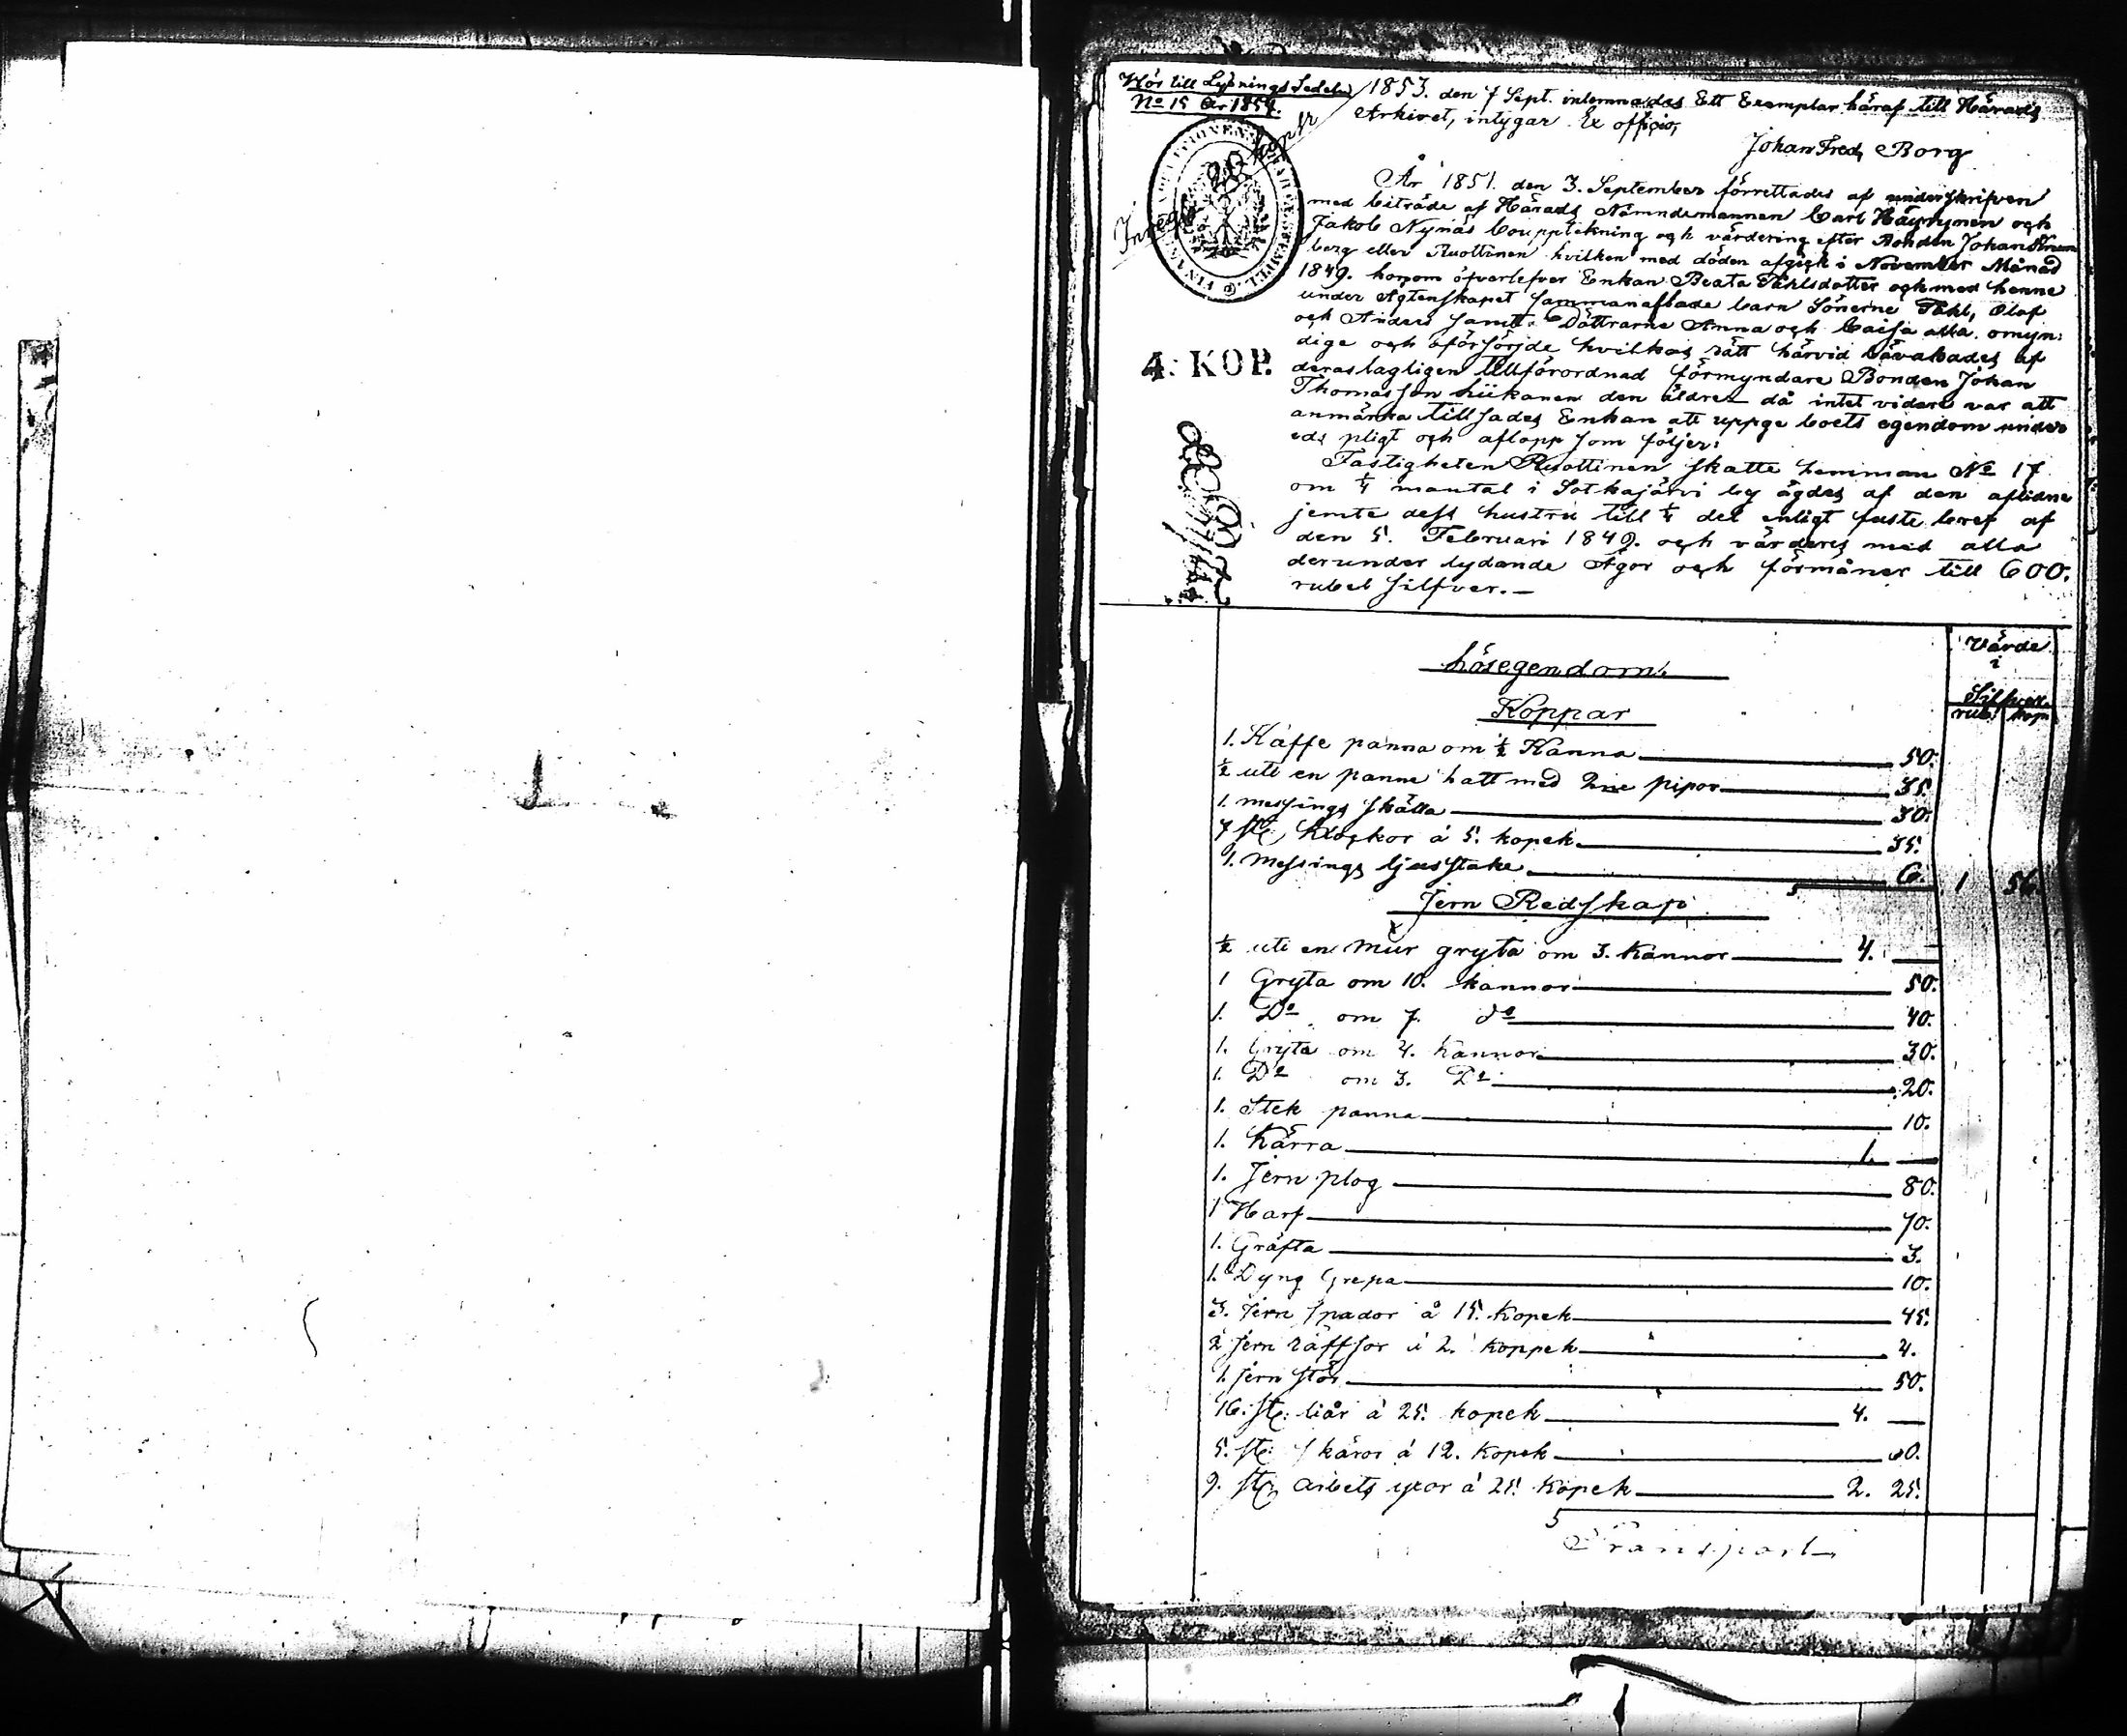 Hör till Lysnings Sedeln
No 15 År 1854.
1853. den 7 Sept. inlemnades Ett Exemplar häraf till Härads
Arkivet, intygar Ex officio,
Johan Fred, Borg
20 kop Sr
4: KOP.
År 1851. den 3. September förrettades af underskrifven
med biträde af Härads Nämndemannen Carl Häyrynen och
Jakob Nynäs Bouppteckning och värdering efter Bonden Johan
berg eller Ruottinen hvilken med döden afgick i November Månad
1849. honom öfverlefver Enkan Beata Påhlsdotter och med henne
under Ägtenskapet sammanaflade barn Sönerne Påhl, Olof
och Anders samt Döttrarne Anna och Caisa alla omyn:
dige och oförsörjde hvilkas rätt härvid bevakades af
deras lagligen tillförordnad förmyndare Bonden Johan
Thomasson Liikanen den äldre då intet vidare var att
anmärka tillsades Enkan att uppge boets egendom under
eds pligt och aflopp som följer:
Fastigheten Ruottinen skatte hemman No 17
om 1/4 mantal i Sotkajärvi by ägdes af den aflidne
jemte dess hustru till 1/4 del enligt faste bref af
den 5. Februari 1849. och värderes med alla
derunder lydande Ägor och förmåner till 600.
rubel silfver.—
Värde
i
Silfver.
rub: kop
Lösegendom.
Koppar
1. Kaffe panna om 1/2 Kanna 50.
1/2 uti en panne hatt med 2ne pipor 35.
1. messings skålla 30.
7 st: klockor á 5. kopek 35.
1. Messings ljusstake 6. 1 56.
Jern Redskap
1/2 uti en mur gryta om 3. Kannor 4. —
1 Gryta om 10. kannor 50.
1. Do om 7. do 40.
1. Gryta om 4. Kannor 30.
1. Do om 3. Do 20.
1. Stek panna 10.
1. Kärra 1. —
1. Jern plog 80.
1 Harf 70.
1. Gräfta 3.
1. Dyng Grepa 10.
3. Jern spador á 15. Kopek 45.
2 Jern räffsor á 2. koppek 4.
1. Jern stör 50.
16. st: liår á 25. kopek 4. —
5. st: skäror á 12. Kopek 60.
9. st: arbets yxor á 25. Kopek 2. 25.
Transport